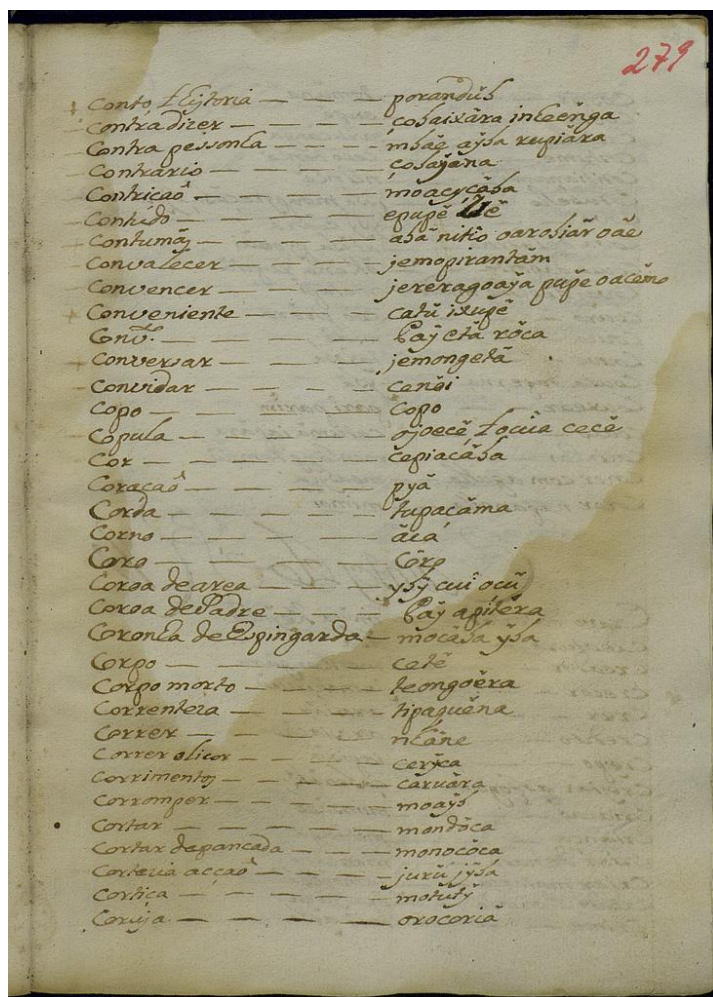 279
Conto, l Historia — — — porandūb
Contradizer — — — cobaixāra inheēnga
Contra pessonha — — — mbāe aȳba rupiāra
Contrario — — — çobayāna
Contricaõ — — — mōacȳcāba
Contudo — — — epupē
Contumās — — — abā nitio oarobiār oāe
Convalecer — — — jemopirantām
Convencer — — — jereragoaȳa pupe oacēmo
Conveniente — — — catū ixupē
Conv.to — — — Paȳ etā rōca
Conversar — — — jemongetā
Convidar — — — cenōi
Copo — — — Copo
Copula — — — ojoecē l ocuīa cecē
Cor — — — cepiacāba
Coraçaõ — — — pyā
Corda — — — tupacāma
Corno — — — āca
Coro — — — Cōro
Coroa de area — — — ybȳ cuī ocū
Coroa de Padre — — — Paȳ apitēra
Coronha de Espingarda — mōcāba ȳba
Corpo — — — cetē
Corpo morto — — — teongoēra
Correnteza — — — tipaquēna
Correr — — — nhāne
Correr olicor — — — cerȳca
Corrimentos — — — caruāra
Corromper — — — moaȳb
Cortar — — — mondōca
Cortar de pancada — — — monocōca
Cortezia acçaõ — — — jurū jȳba
Cortiça — — — motutȳ
Coruja — — — orocoriā